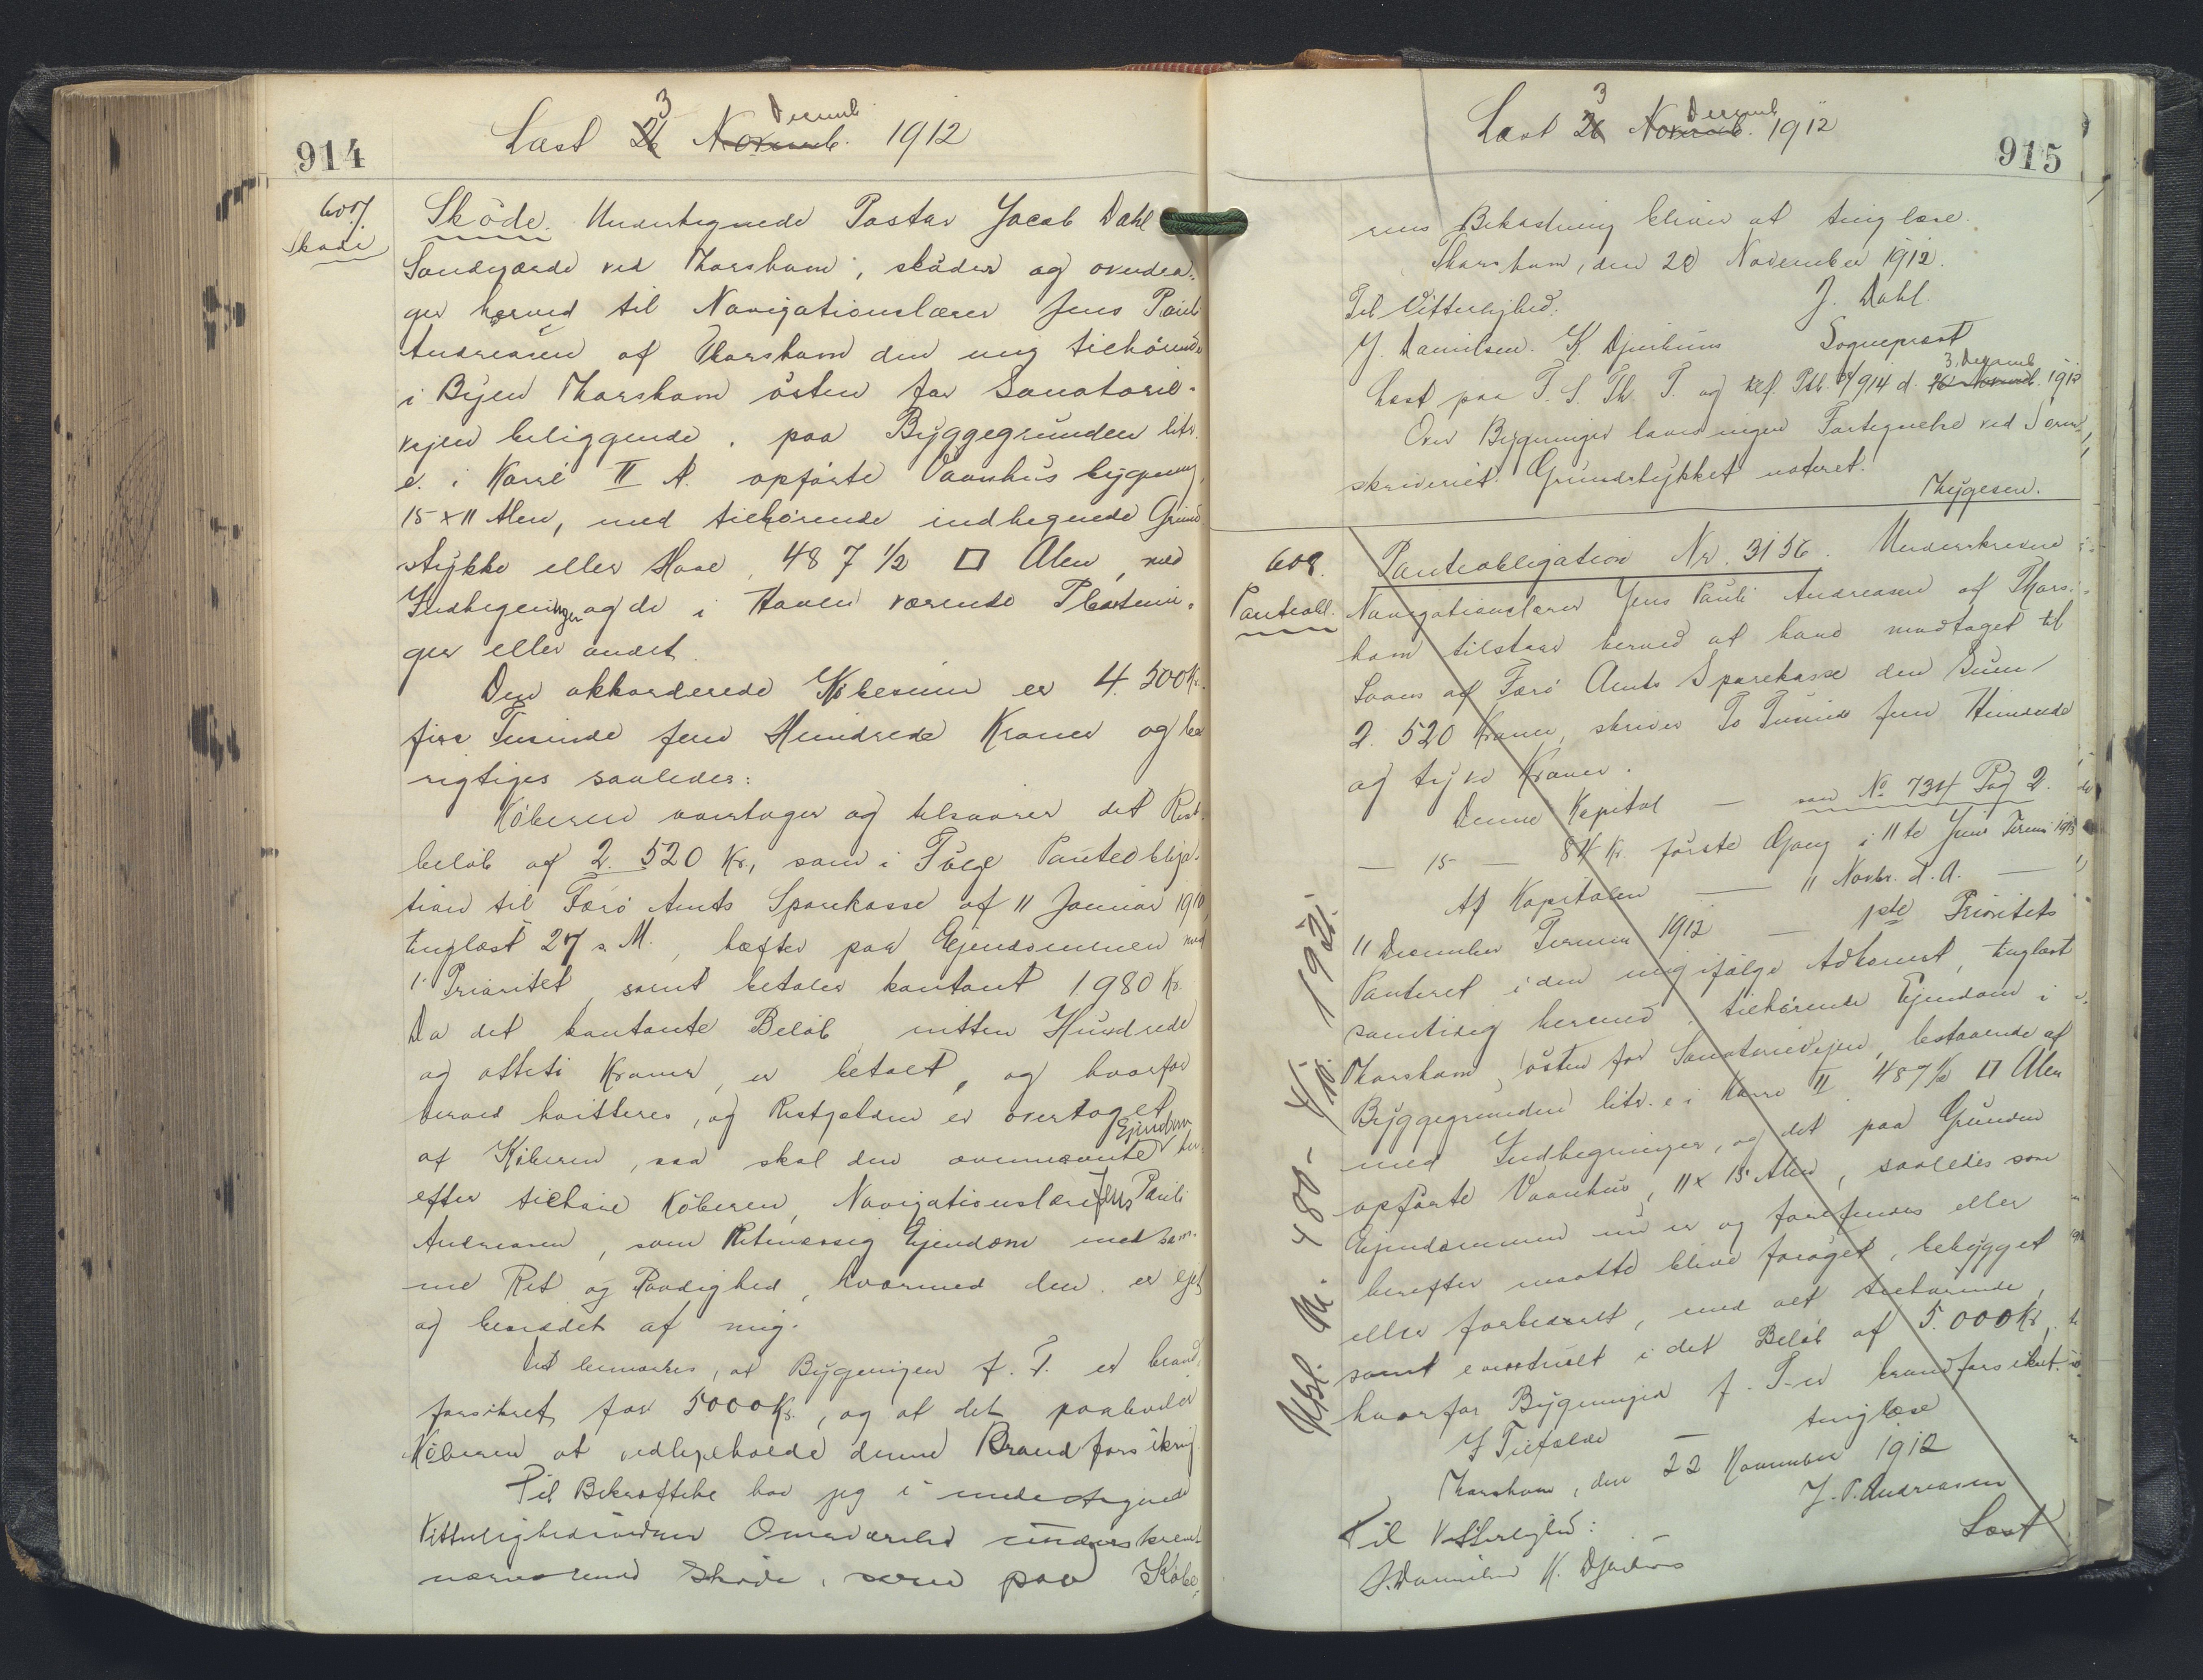 914
Læst 26 Novemb. 3 Decemb 1912
607.
Skøde
Skøde. Undertegnede Pastor Jacob Dahl
Sandegærde ved Thorshavn, skøder og overdra-
ger herved til Navigationslærer Jens Pauli
Andreasen af Thorshavn den mig tilhørende
i Byen Thorshavn østen for Sanatorie-
vejen beliggende, paa Byggegrunden litr.
e. i Karré II A. opførte Vaanhus bygning,
15 x 11 Alen, med tilhørende indhegnede Grund
stykke eller Have, 487 1/2 □ Alen, med
Indhegninger og de i Haven værende Plantnin-
ger eller andet.
Den akkorderede Købesum er 4.500 Kr.
fire Tusinde fem Hundrede Kroner og be
rigtiges saaledes:
Køberen overtager og tilsvarer det Rest-
beløb af 2.520 Kr, som i Følge Panteobliga-
tion til Færø Amts Sparekasse af 11 Januar 1910,
tinglæst 27 s. M., hæfter paa Ejendommen med
1. Prioritet, samt betaler kontant 1980 Kr.
Da det kontante Beløb, nitten Hundrede
og otteti Kroner, er betalt, og hvorfor
herved kvitteres, og Restgælden er overtaget
af Køberen, saa skal den ovennævnte Ejendom her-
efter tilhøre Køberen, Navigationslærer Jens Pauli
Andreasen, som Retmæssig Ejendom med sam-
me Ret og Raadighed, hvormed den er ejet
og besiddet af mig.
Det bemærkes, at Bygningen f. T. er brand-
forsikret for 5000 Kr., og at det paahviler
Køberen at vedligeholde denne Brandforsikring
Til Bekræftelse har jeg i undertegnede
Vitterlighedsvidners Overværelse underskrevet
nærværende Skøde, som paa Købe-
915
Læst 26 Novemb. 3 Decemb 1912
rens Bekostning bliver at tinglæse.
Thorshavn, den 20 November 1912.
Til Vitterlighed: J. Dahl.
J. Danielsen. K. Djurhuus Sognepræst
Læst paa F. S. Th. T. og Ref. Ptb. 914 d. 26 Novemb. 3. Decemb 1912
Over Bygninger laves ingen Fortegnelse ved Soren-
skriveriet. Grundstykket noteret.
Thygesen.
608.
Panteobl.
Panteobligation Nr. 3156. Underskrevne
Navigationslærer Jens Pauli Andreasen af Thors-
havn tilstaar herved at have modtaget til
Laans af Færø Amts Sparekasse den Sum
2.520 Kroner, skriver To Tusinde fem Hundrede
og tyve Kroner.
Denne Kapital — som No 734 Pag 2.
— 15 — 84 Kr. første Gang i 11te Juni Termin 1913
Af Kapitalen — 11 Novbr. d. A. —
11 December Termin 1912 — 1ste Prioritets
Panteret i den mig ifølge Adkomst, tinglæst
samtidig hermed, tilhørende Ejendom i
Thorshavn, østen for Sanatorievejen, bestaaende af
Byggegrunden litr. e i Karre II 487 1/2 □ Alen
med Indhegninger, og det paa Grunden
opførte Vaanhus, 11 x 15 Alen, saaledes som
Ejendommen nu er og forefindes eller
herefter maatte blive forøget, bebygget
eller forbedret, med alt tilhørende,
samt eventuelt i det Beløb af 5.000 Kr,
hvorfor Bygningen f. T. er brandforsikret.
I Tilfælde — tinglæse
Thorshavn, den 22 November 1912
J. P. Andreasen
Til Vitterlighed:
J. Danielsen K. Djurhuus
Læst
Utsl. Nr. 480 - 4/10. 1921.